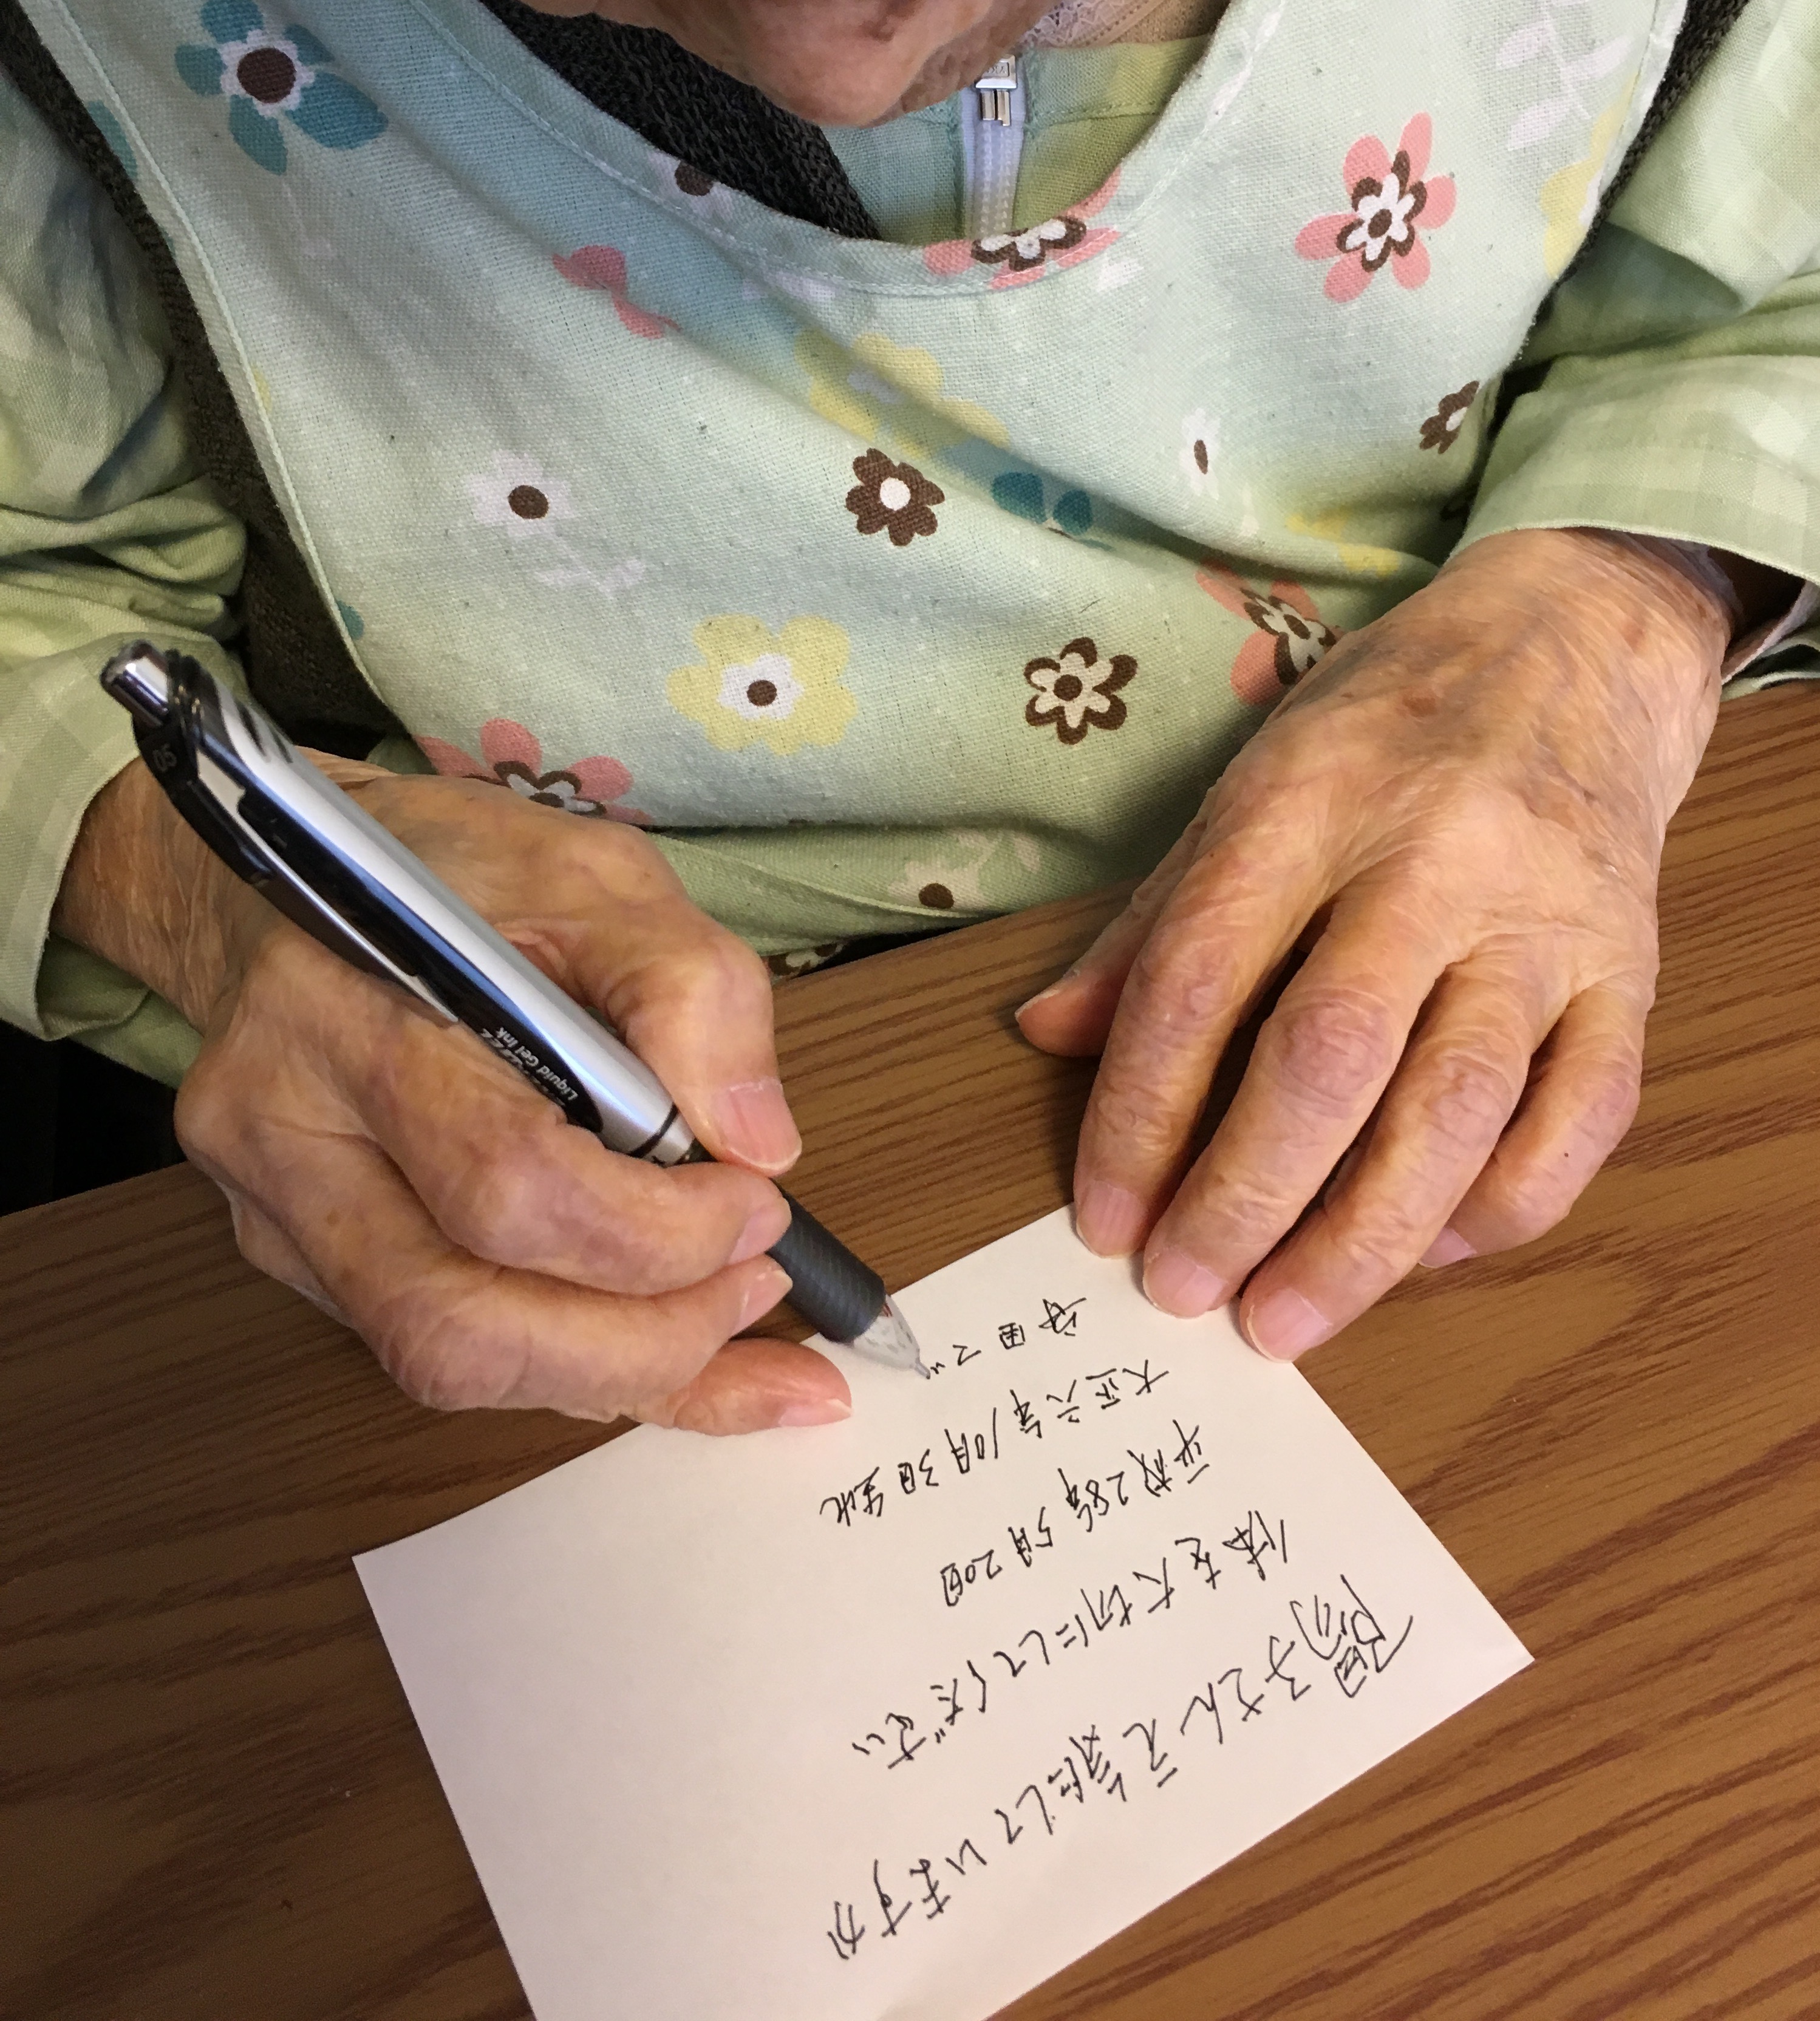 陽子さん元気にしていますか
体を大切にしてください
平成28年5月20日
大正六年10月3日生れ
安田
Liquid Gel Ink
05